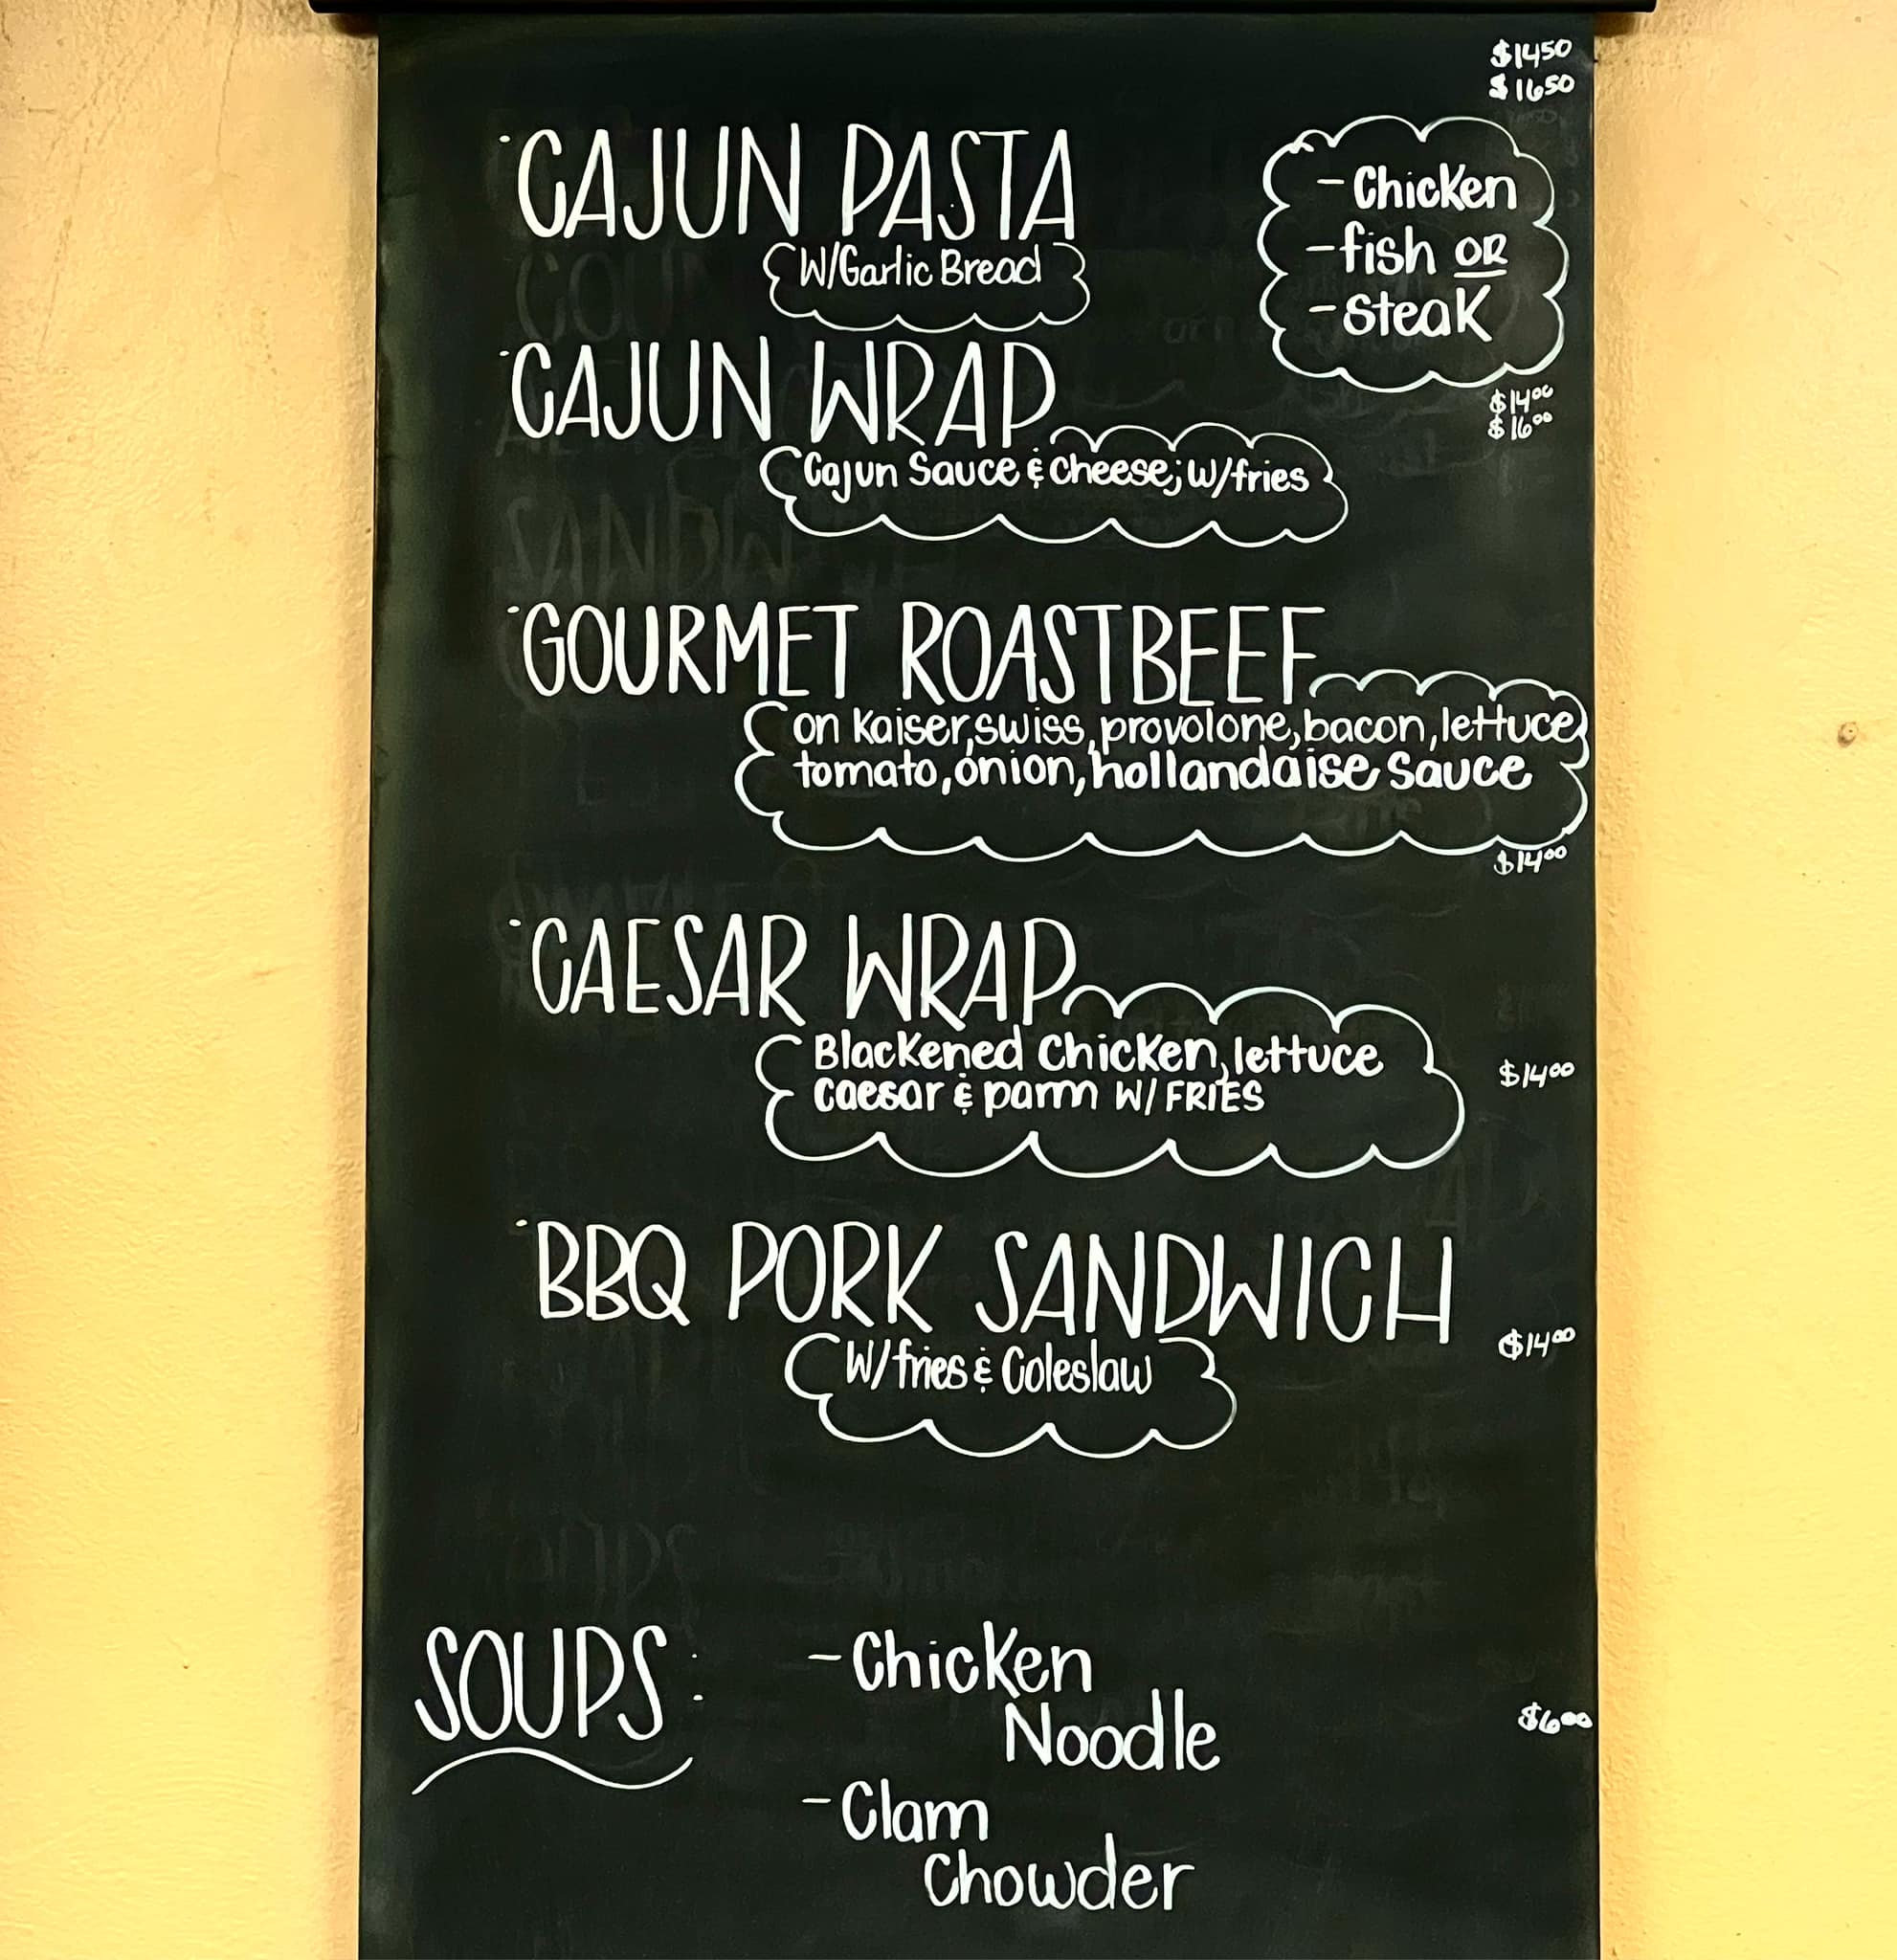 $14.50
$16.50
CAJUN PASTA
W/Garlic Bread
-Chicken
-fish OR
-steak
CAJUN WRAP
Cajun Sauce & Cheese; W/fries
$14.00
$16.00
GOURMET ROASTBEEF
on Kaiser, swiss, provolone, bacon, lettuce
tomato, onion, hollandaise sauce
$14.00
CAESAR WRAP
Blackened Chicken, lettuce
caesar & parm W/ FRIES
$14.00
BBQ PORK SANDWICH
W/fries & Coleslaw
$14.00
SOUPS:
-Chicken
Noodle
$6.00
-Clam
Chowder